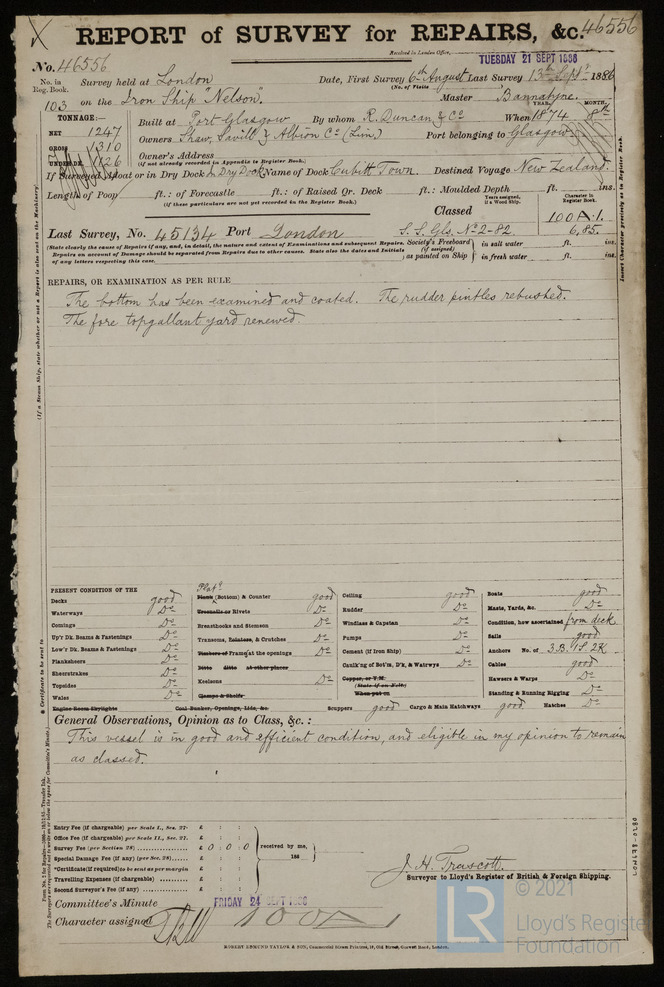 REPORT of SURVEY for REPAIRS, &c. 46556
Received in London Office,
TUESDAY 21 SEPT 1886
No. 46556
No. in Reg. Book.
Survey held at London
Date, First Survey 6th August Last Survey 13th Septr 1886
(No. of Visits
103 on the Iron Ship "Nelson". Master Bannatyne.
TONNAGE:—
YEAR. MONTH.
NET 1247 Built at Port Glasgow By whom R. Duncan & Co When 1874
GROSS 1310 Owners Shaw, Savill & Albion Co (Lim.) Port belonging to Glasgow
UNDER DK. 1126 Owner's Address
(if not already recorded in Appendix to Register Book.)
If Surveyed Afloat or in Dry Dock In Dry Dock Name of Dock Cubitt Town. Destined Voyage New Zealand.
Length of Poop ft.: of Forecastle ft.: of Raised Qr. Deck ft.: Moulded Depth ft. ins.
(if these particulars are not yet recorded in the Register Book.)
Years assigned, if a Wood Ship.
Character in Register Book.
Classed 100A.1.
Last Survey, No. 45134 Port London S.S. Gls. No 2-82. 6,85.
(State clearly the cause of Repairs if any, and, in detail, the nature and extent of Examinations and subsequent Repairs.
Repairs on account of Damage should be separated from Repairs due to other causes. State also the dates and Initials
of any letters respecting this case.
Society's Freeboard (if assigned) as painted on Ship
in salt water ft. ins.
in fresh water ft. ins.
REPAIRS, OR EXAMINATION AS PER RULE
The bottom has been examined and coated. The rudder pintles rebushed.
The fore topgallant yard renewed.
PRESENT CONDITION OF THE
Decks good
Waterways Do
Comings Do
Up'r Dk. Beams & Fastenings Do
Low'r Dk. Beams & Fastenings Do
Planksheers Do
Sheerstrakes Do
Topsides Do
Wales Do
Engine Room Skylights
Plate
Plank (Bottom) & Counter good
Treenails or Rivets Do
Breasthooks and Stemson Do
Transoms, Pointers, & Crutches Do
Timbers of Frame at the openings Do
Ditto ditto at other places
Keelsons Do
Clamps & Shelfs
Coal Bunker, Openings, Lids, &c.
Ceiling good
Rudder Do
Windlass & Capstan Do
Pumps Do
Cement (if Iron Ship) Do
Caulk'ng of Bot'm, D'k, & Watrwys Do
Copper, or Y.M.
(State if on Felt)
When put on
Boats good
Masts, Yards, &c. Do
Condition, how ascertained from deck
Sails good
Anchors No. of 3.B. 1S. 2K
Cables good
Hawsers & Warps Do
Standing & Running Rigging Do
Scuppers good Cargo & Main Hatchways good. Hatches Do
General Observations, Opinion as to Class, &c.:
This vessel is in good and efficient condition, and eligible in my opinion to remain
as classed.
Entry Fee (if chargeable) per Scale I., Sec. 27. £ : :
Office Fee (if chargeable) per Scale II., Sec. 27. £ : :
Survey Fee (per Section 28) £ 0 : 0 : 0
Special Damage Fee (if any) (per Sec. 28) £ : :
*Certificate (if required) to be sent as per margin £ : :
Travelling Expenses (if chargeable) £ : :
Second Surveyor's Fee (if any) £ : :
received by me,
188
J.H. Truscott.
Surveyor to Lloyd's Register of British & Foreign Shipping.
Committee's Minute FRIDAY 24 SEPT 1886
Character assigned 100A1
ROBERT EDMUND TAYLOR & SON, Commercial Steam Printers, 19, Old Street, Goswell Road, London.
(If a Steam Ship, state whether or not a Report is also sent on the Machinery)
Insert Character precisely as in Register Book.
* Certificate to be sent to
LR
© 2021
Lloyd's Register
Foundation